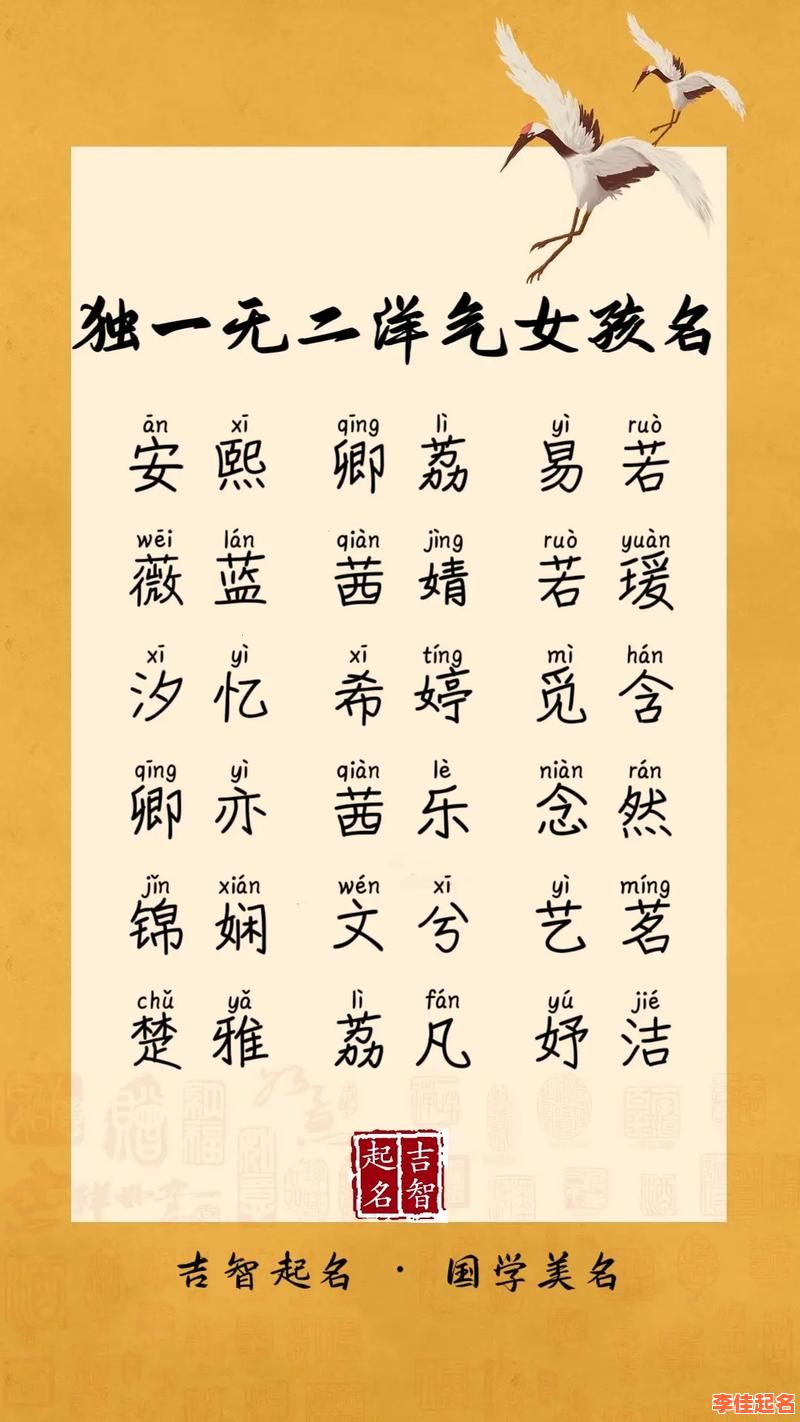 独一无二洋气女孩名
ān xī qīng lì yì ruò
安熙 卿荔 易若
wēi lán qiàn jìng ruò yuàn
薇蓝 茜婧 若瑗
xī yì xī tíng mì hán
汐忆 希婷 觅含
qīng yì qiàn lè niàn rán
卿亦 茜乐 念然
jǐn xián wén xī yì míng
锦娴 文兮 艺茗
chǔ yǎ lì fán yú jié
楚雅 荔凡 妤洁
吉智起名
吉智起名 · 国学美名
李佳起名